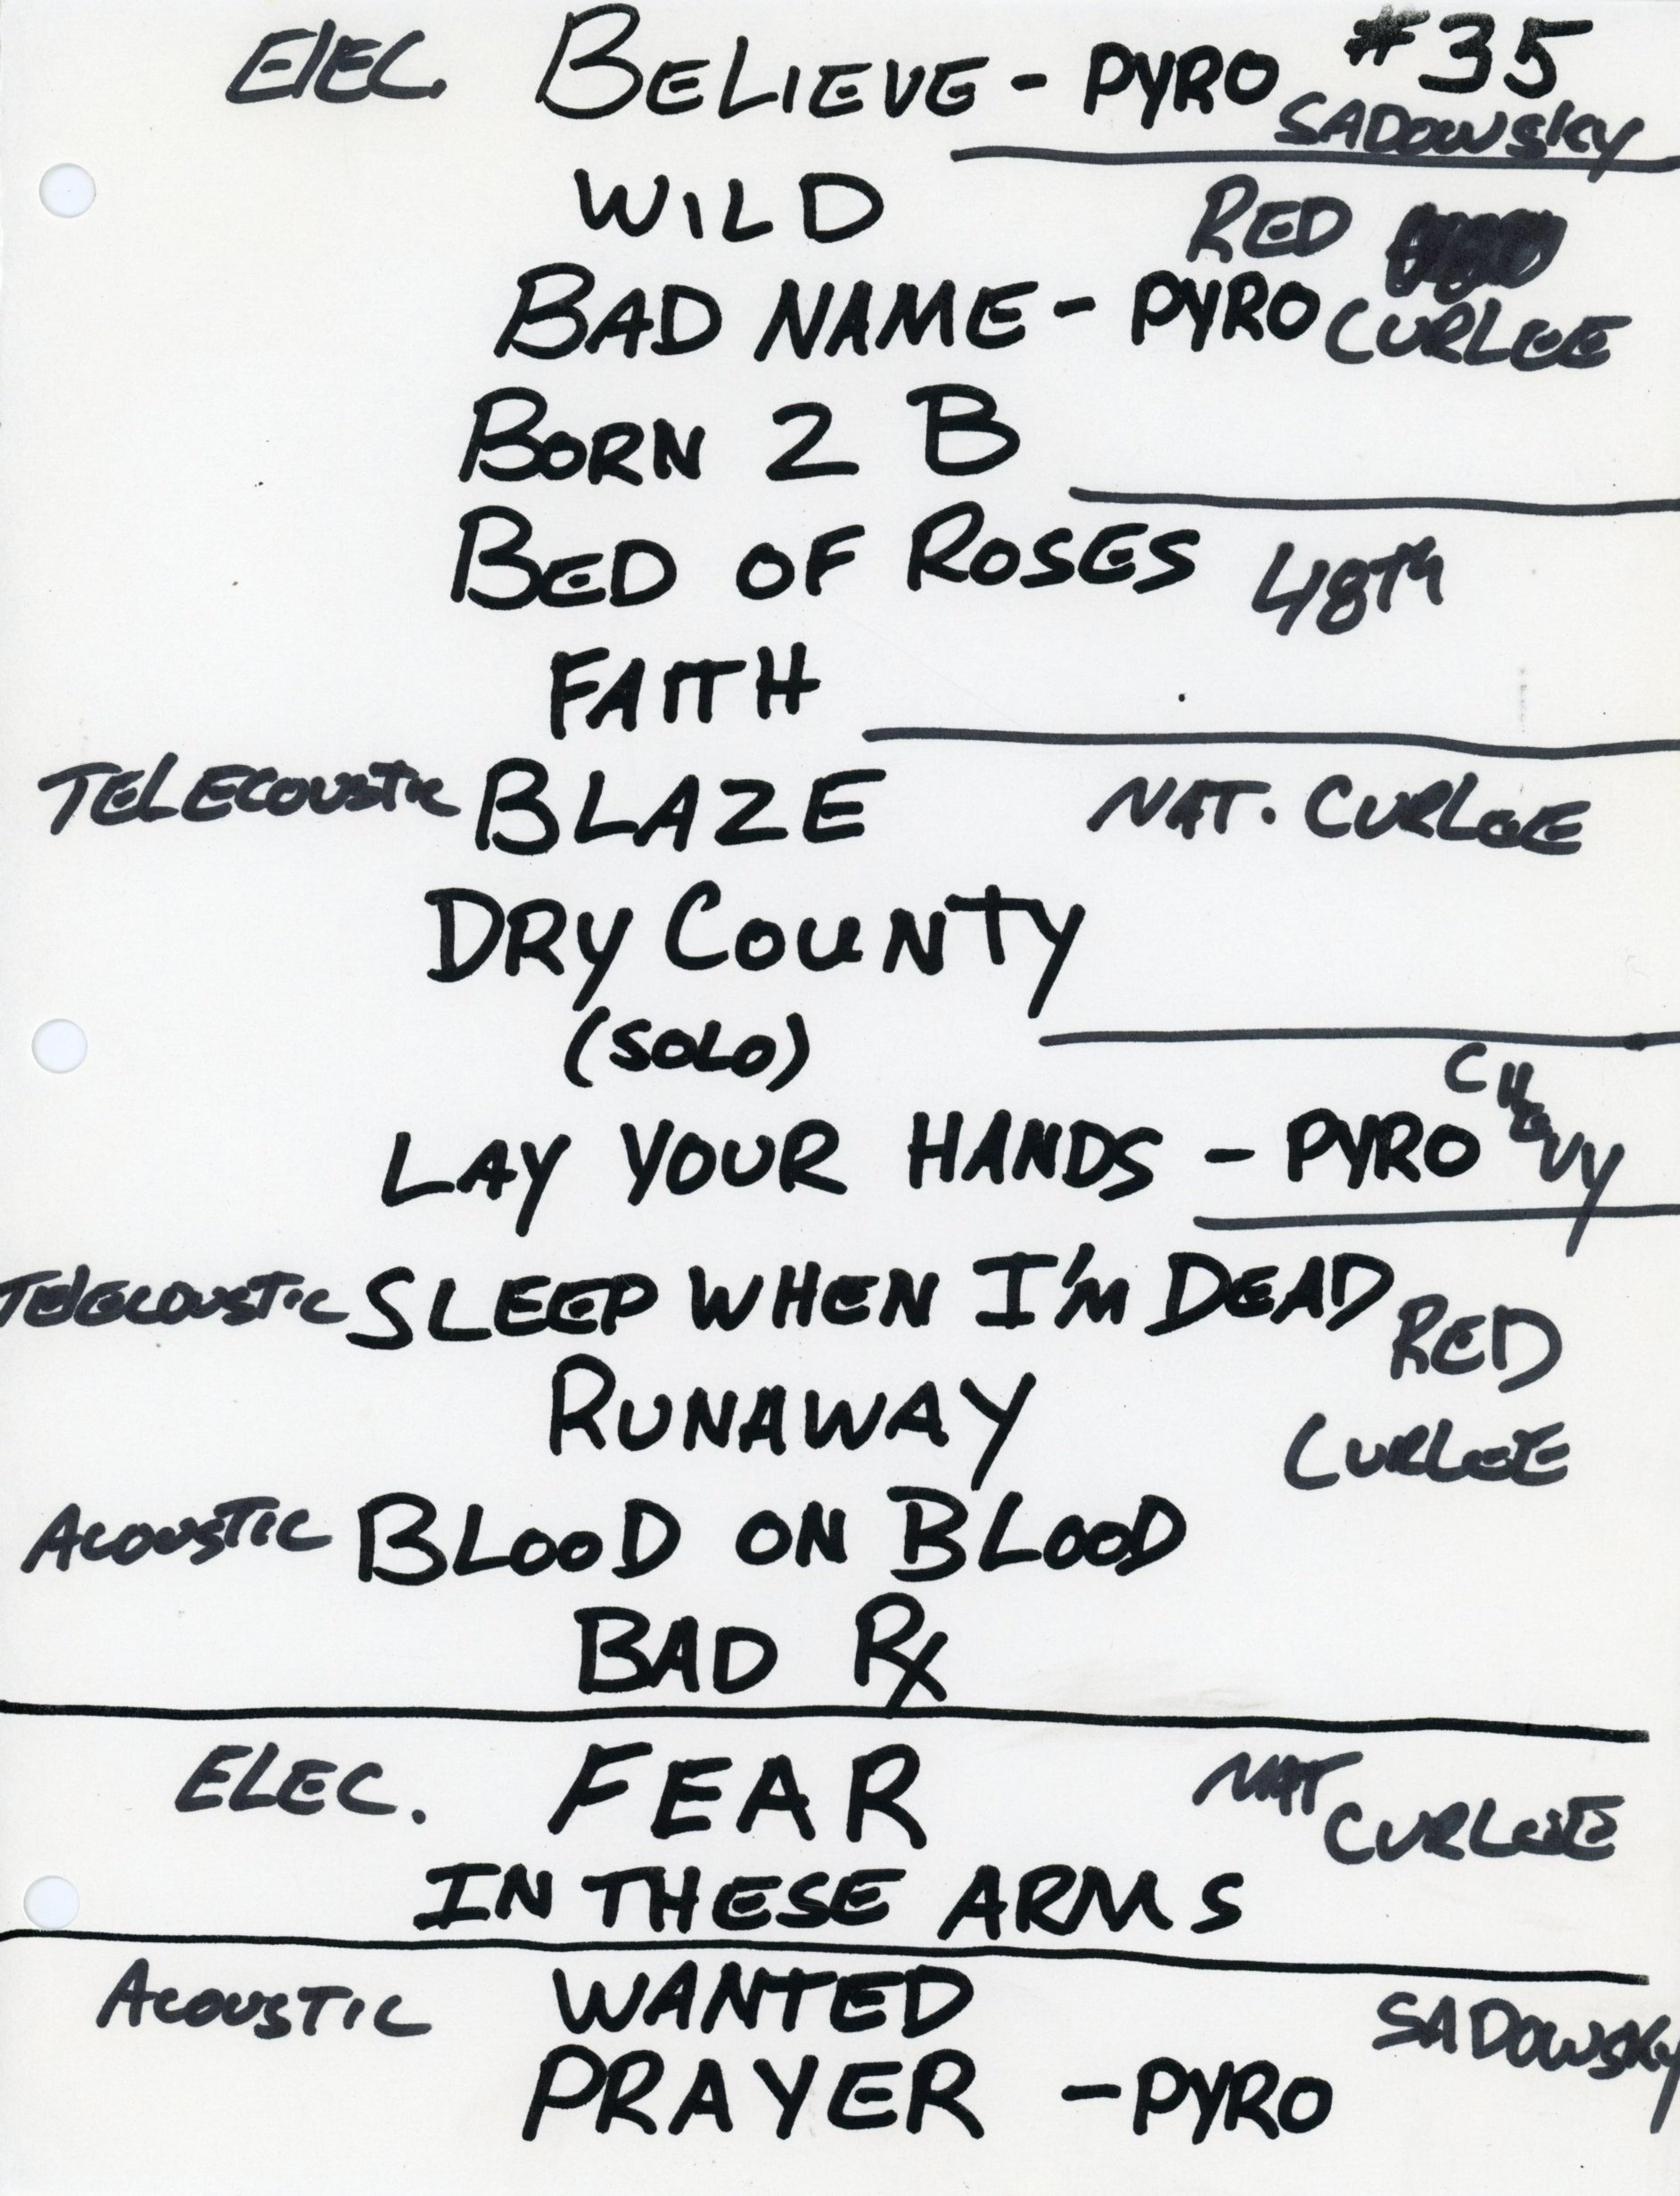 ELEC. BELIEVE - PYRO #35
SADOWSKY
WILD RED
BAD NAME - PYRO CURLEE
BORN 2 B
BED OF ROSES 48TH
FAITH
TELECOUSTIC BLAZE NAT. CURLEE
DRY COUNTY
(SOLO)
LAY YOUR HANDS - PYRO CHEVY
TELECOUSTIC SLEEP WHEN I'M DEAD RED
RUNAWAY CURLEE
ACOUSTIC BLOOD ON BLOOD
BAD Rx
ELEC. FEAR NAT CURLEE
IN THESE ARMS
ACOUSTIC WANTED SADOWSKY
PRAYER - PYRO